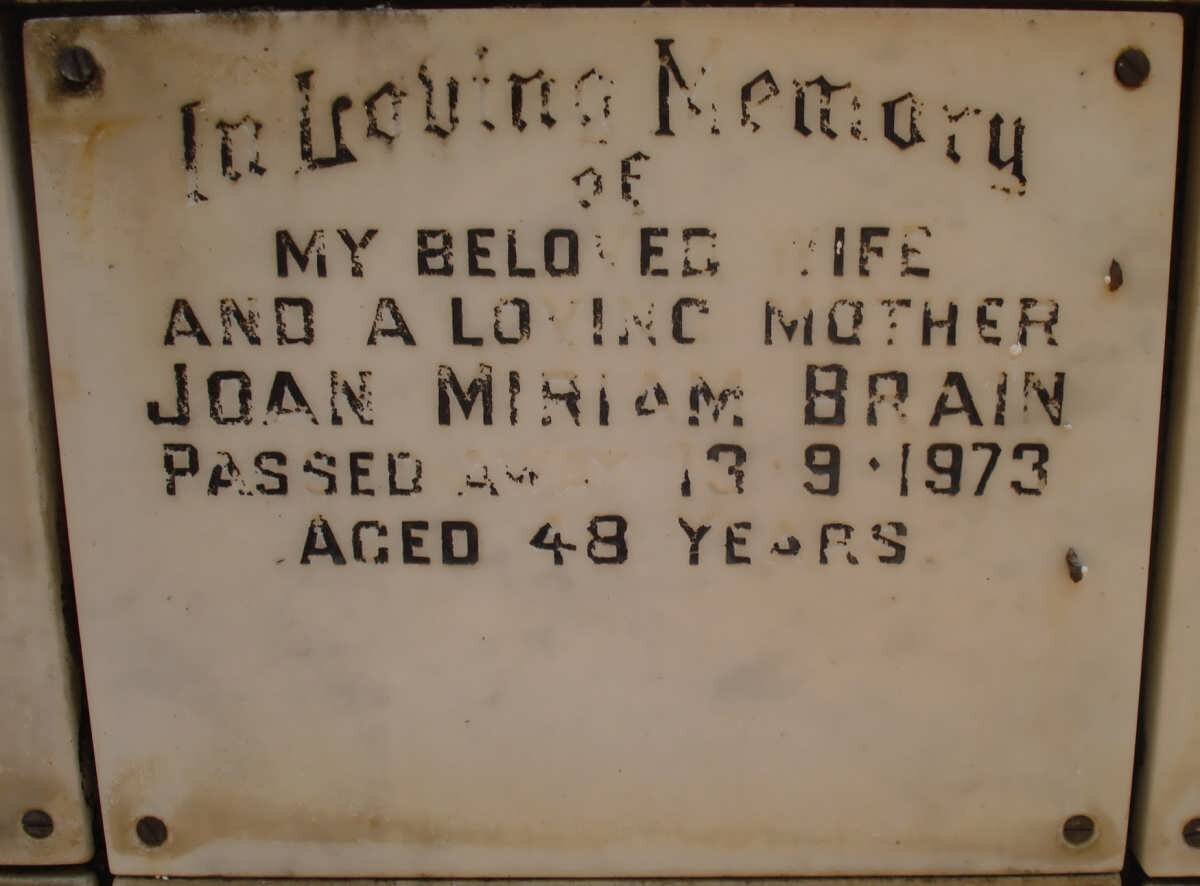 In Loving Memory
of
MY BELOVED WIFE
AND A LOVING MOTHER
JOAN MIRIAM BRAIN
PASSED AWAY 13 · 9 · 1973
AGED 48 YEARS